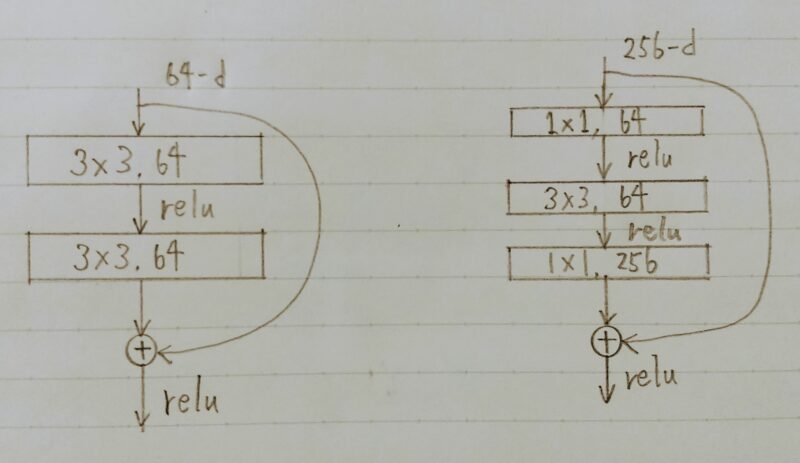 64-d
3x3, 64
relu
3x3, 64
+
relu
256-d
1x1, 64
relu
3x3, 64
relu
1x1, 256
+
relu